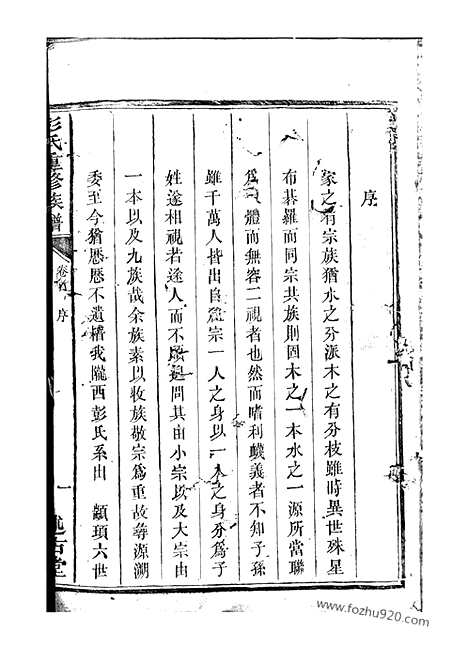 序
家之有宗族猶水之分派木之有分枝雖時異世殊星
布碁羅而同宗共族則固木之一本水之一源所當聯
為一體而無容二視者也然而嗜利蠛義者不知子孫
雖千萬人皆出自
宗一人之身以一人之身分為子
姓遂相視者途人而不
問其由小宗以及大宗由
一本以及九族哉余族素以收族敬宗爲重故尋源溯
委至今猶歷歷不遺稽我隴西彭氏系出 顓頊六世
彭氏重修族譜
卷首
序
一
述古堂
www.fozhu920.com